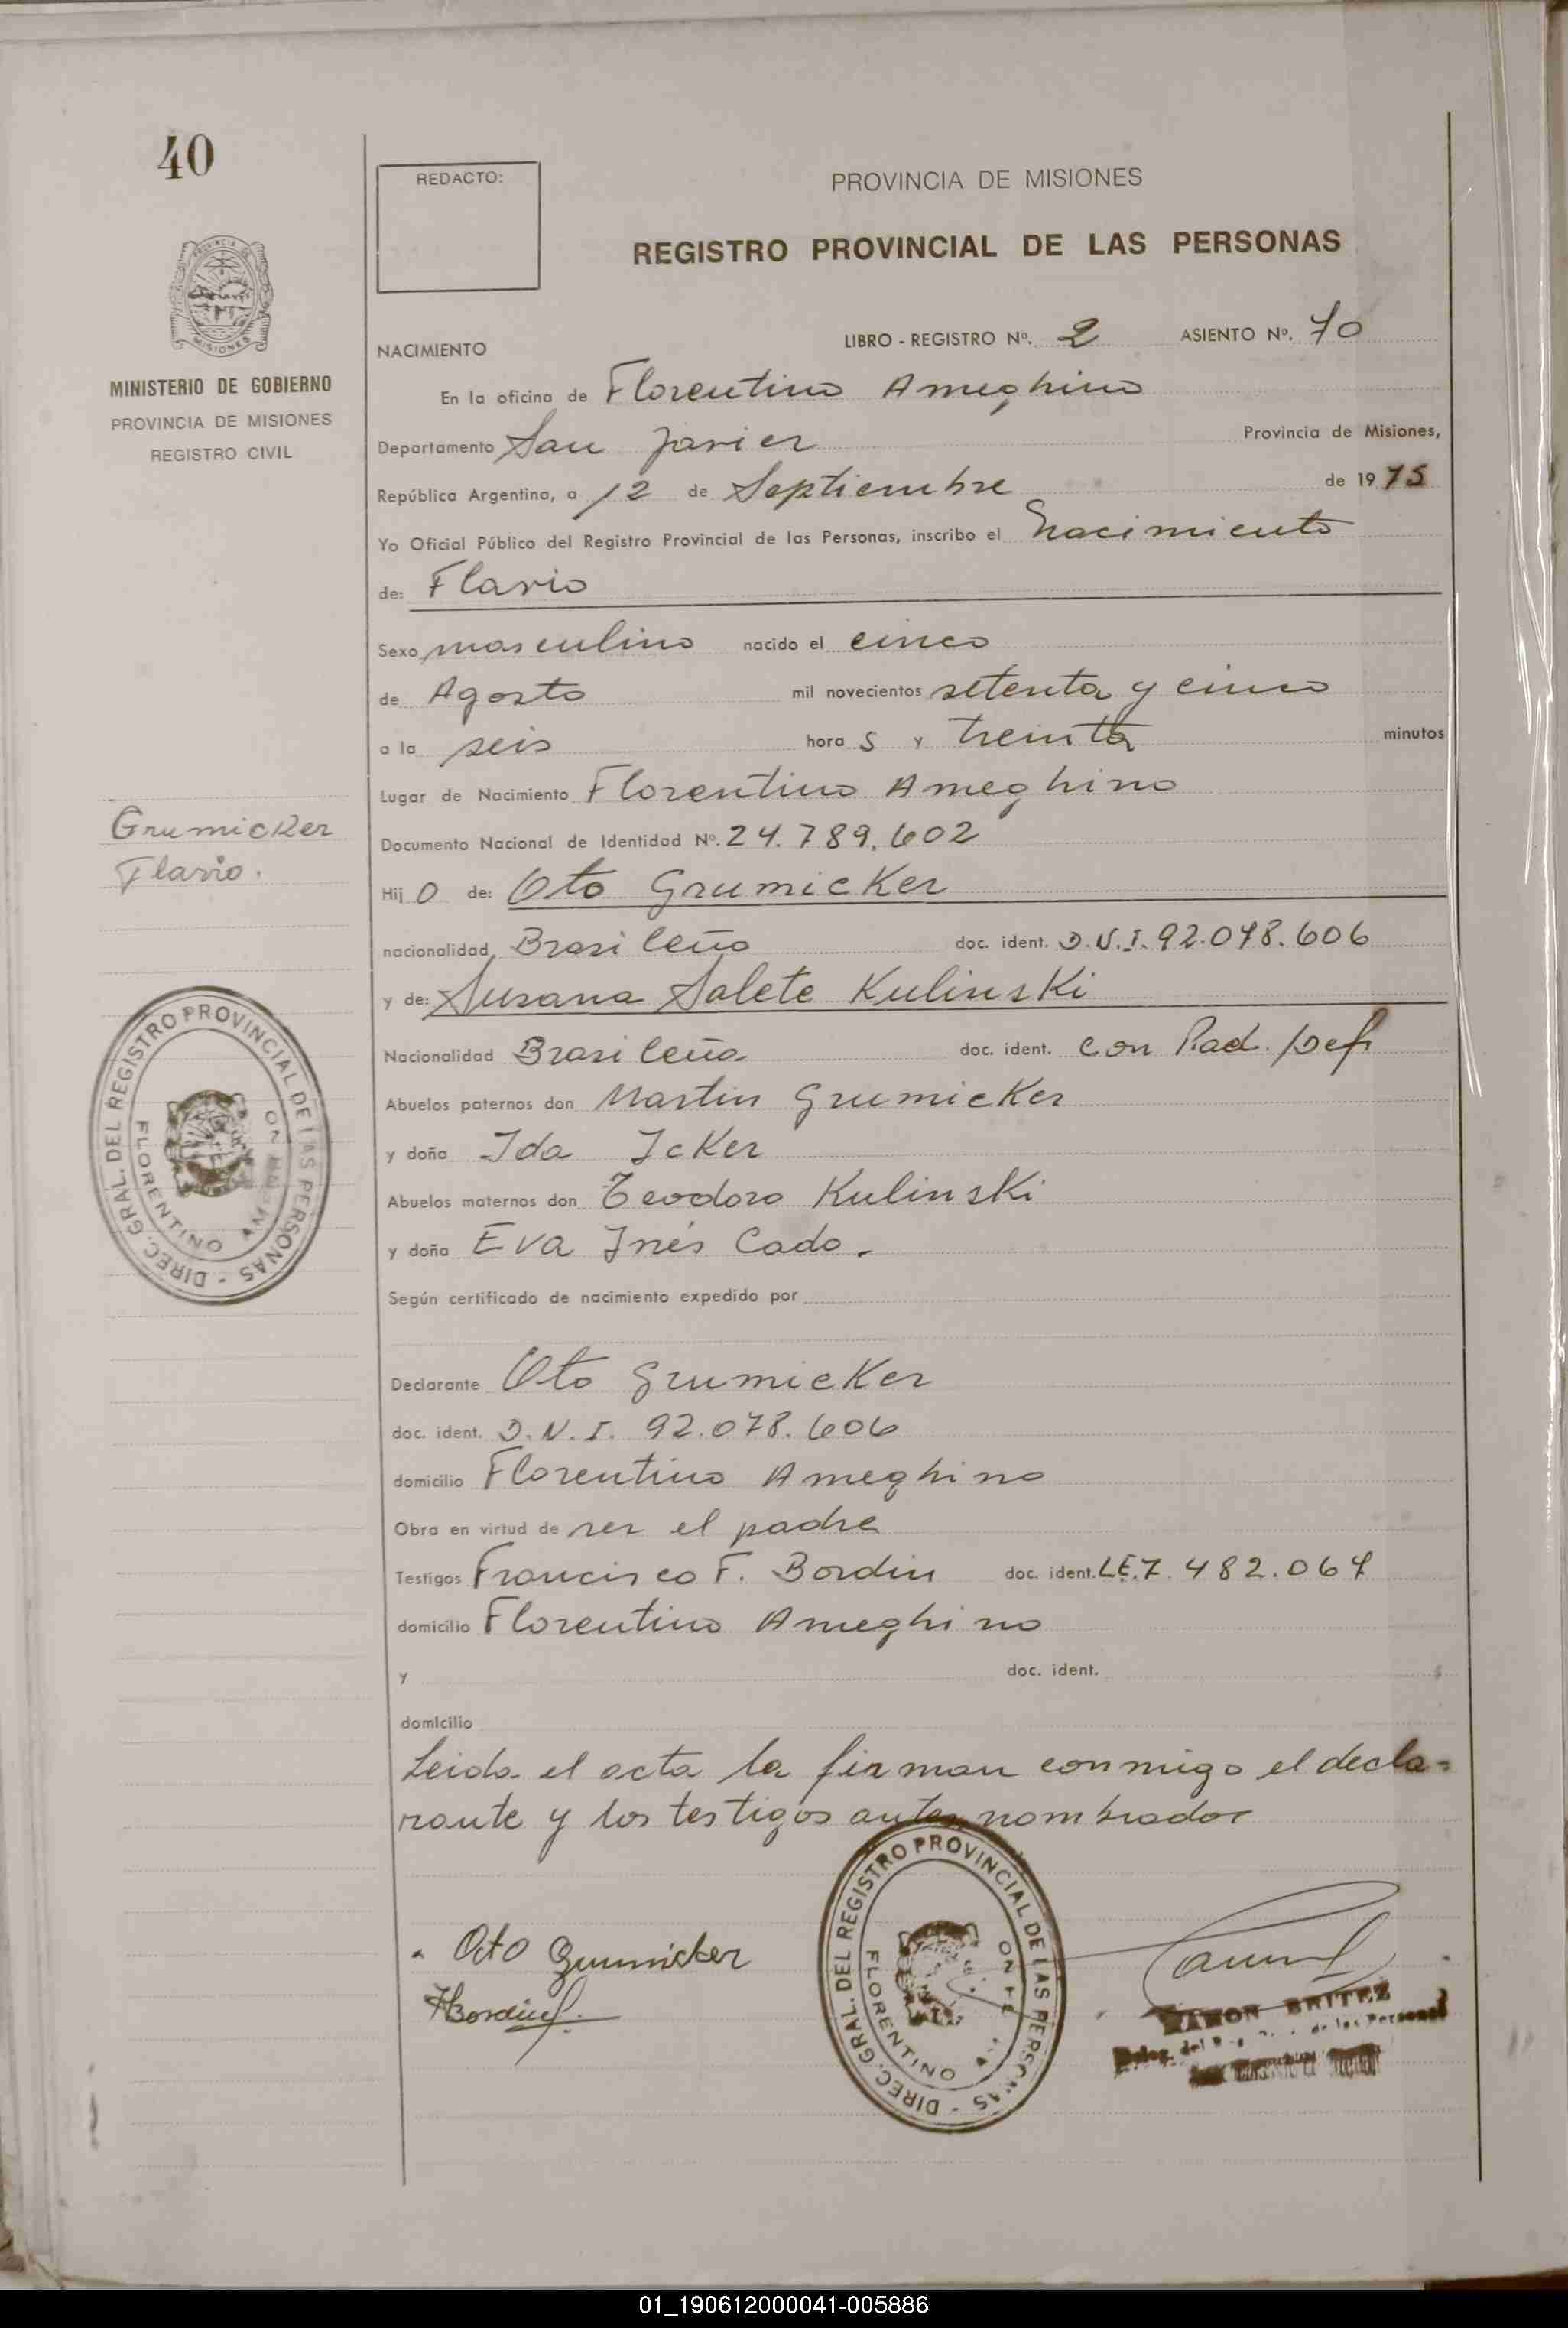 40
REDACTO:
PROVINCIA DE MISIONES
REGISTRO PROVINCIAL DE LAS PERSONAS
MINISTERIO DE GOBIERNO
PROVINCIA DE MISIONES
REGISTRO CIVIL
NACIMIENTO LIBRO - REGISTRO Nº. 2 ASIENTO Nº. 70
En la oficina de Florentino Ameghino
Departamento San Javier Provincia de Misiones,
República Argentina, a 12 de Septiembre de 1975
Yo Oficial Público del Registro Provincial de las Personas, inscribo el Nacimiento
de: Flavio
Sexo masculino nacido el cinco
de Agosto mil novecientos setenta y cinco
a la seis horas y treinta minutos
Lugar de Nacimiento Florentino Ameghino
Documento Nacional de Identidad Nº. 24.789.602
Grumicker
Flavio.
Hijo de: Oto Grumicker
nacionalidad Brasileño doc. ident. D.N.I. 92.078.606
y de: Susana Salete Kulinski
Nacionalidad Brasileña doc. ident. con Rad. Def
Abuelos paternos don Martin Grumicker
y doña Ida Icker
Abuelos maternos don Teodoro Kulinski
y doña Eva Inés Cado.
Según certificado de nacimiento expedido por
DIREC. GRAL. DEL REGISTRO PROVINCIAL DE LAS PERSONAS -
FLORENTINO
Declarante Oto Grumicker
doc. ident. D.N.I. 92.078.606
domicilio Florentino Ameghino
Obra en virtud de ser el padre
Testigos Francisco F. Bordin doc. ident. L.E. 7.482.067
domicilio Florentino Ameghino
y doc. ident.
domicilio
Leida el acta la firman conmigo el decla=
rante y los testigos antes nombrados
DIREC. GRAL. DEL REGISTRO PROVINCIAL DE LAS PERSONAS -
FLORENTINO
Oto Grumicker
FBordin
RAMON BRITEZ
de las Personas
01_190612000041-005886